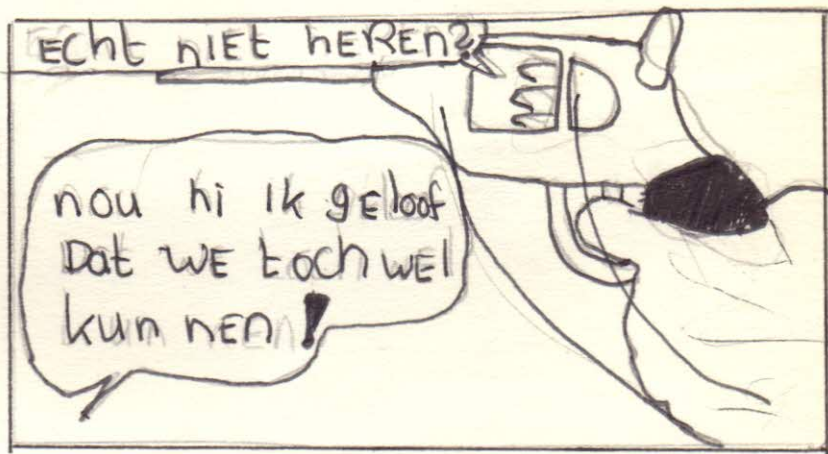 ECHT NIET HEREN?
nou hi ik gEloof
Dat WE toch WEl
kun nEn!